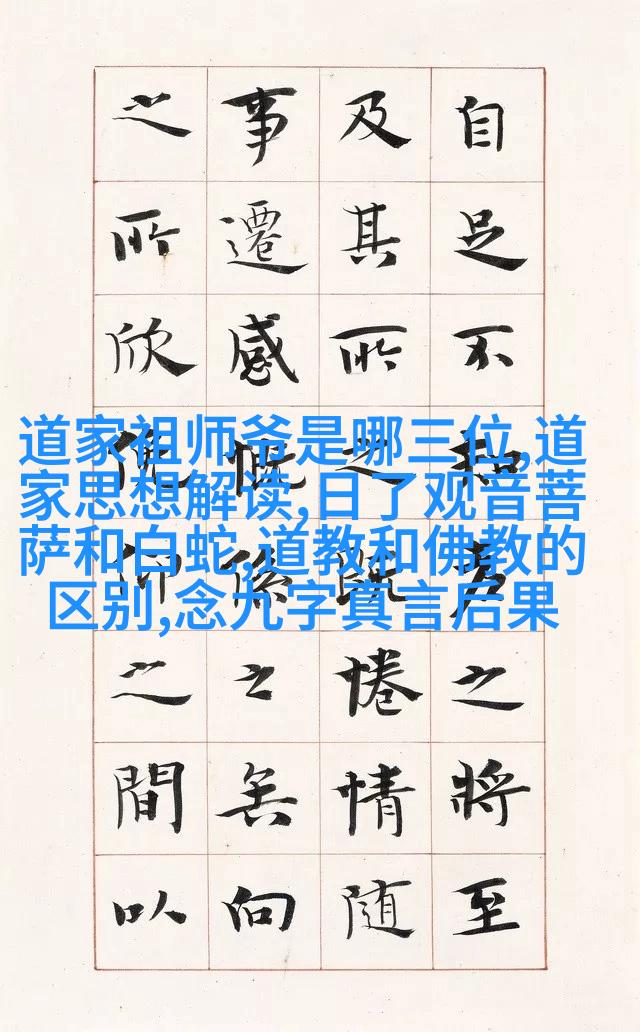 自足不知老之將至
及其所之既惓情隨
事遷感慨係之矣向
之所欣俛仰之間以
道家祖师爷是哪三位,道
家思想解读,日了观音菩
萨和白蛇,道教和佛教的
区别,念九字真言后果